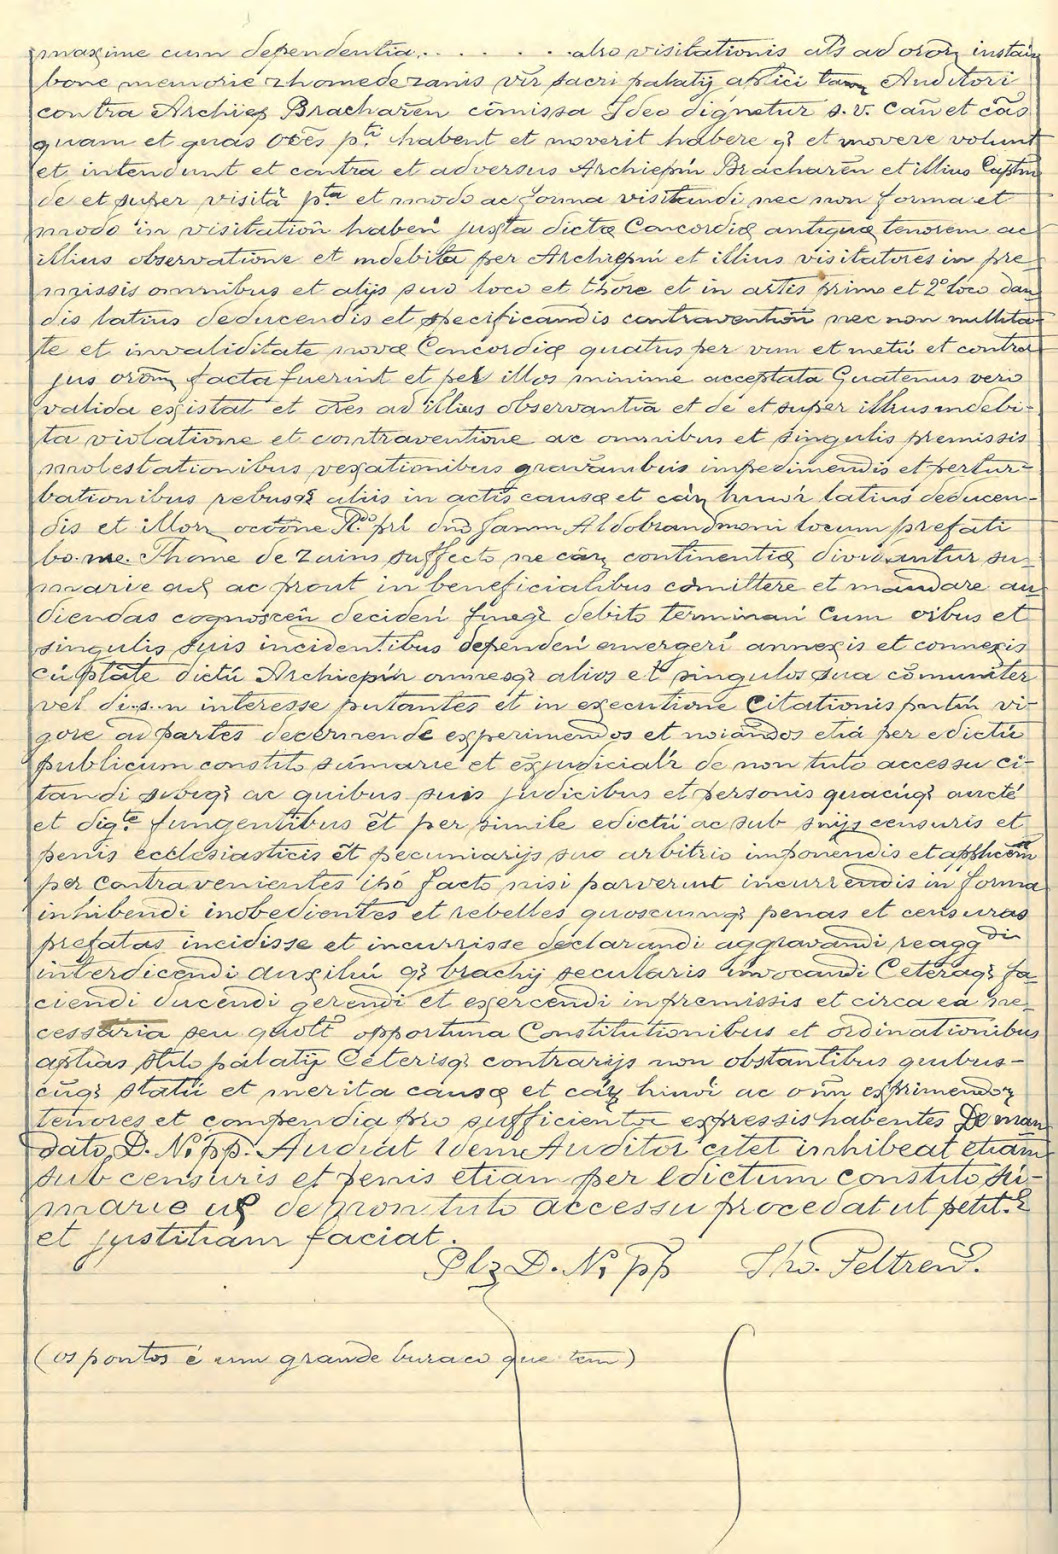 maxime cum dependentia . . . . . . . alro visitationis als ad orōn instan
bone memorie zhomedezanis vir sacri palatij aplici tam Auditori
contra Archiep Bracharēn cōmissa Ideo dignetur s. v. caū et cās
quam et quas orēs p.ti habent et noverit habere q3 et movere volunt
et intendunt et contra et adversus Archiepin Bracharēn et illius Captm
de et super visita p.ta et modo ac forma visitandi nec non forma et
modo in visitatiōn haben juxta dictæ Concordiæ antiquæ tenorem ac
illius observatione et indebita per Archiepin et illius visitatores in pre-
missis omnibus et alijs suo loco et thōre et in artis primo et 2º loco dan
dis latius deducendis et specificandis contraventiōn nec non nullita-
te et invaliditate novæ Concordiæ quatus per vim et metū et contra
jus orōm facta fuerint et per illos minime acceptata Quatenus vero
valida existat et orēs ad illius observantiā et de et super illius indebi-
ta violatione et contraventione ac omnibus et singulis premissis
molestationibus vexationibus gravāmbus impedimendis et pertur-
bationibus rebusq3 aliis in actis causæ et cāz humōi latius deducen-
dis et illor octōne R.do prl dnō Janm Aldobrandmoni locum prefati
bo. me. Thome de Zains suffecto ne cāz continentiæ dividantur su-
marie ac prout in beneficialibus cōmittere et mandare au-
diendas cognoscēn deciden fineq3 debito terminan Cum oibus et
singulis suis incidentibus dependen emergeri annexis et connexis
cū ptāte dictū Archiepin omnesq3 alios et singulos sua cōmuniter
vel di..s..n interesse putantes et in executione citationis partiu vi-
gore ad partes decernende experimendos et noiandos etiā per edictū
publicum constito sūmarie et exjudicialr de non tuto accessu ci-
tandi sibiq3 ac quibus suis judicibus et personis quacūq3 aucté
et dig.te fungentibus ēt per simile edictū ac sub snijs censuris et
penis ecclesiasticis ēt pecuniarijs suo arbitrio imponendis et applicēn
per contravenientes ipō facto nisi parverint incurrendis in forma
inhibendi inobedientes et rebelles quoscumq3 penas et censuras
prefatas incidisse et incurrisse declarandi aggravandi reagg.di
interdicendi auxiliū q3 brachij secularis invocandi Ceteraq3 fa-
ciendi ducendi gerendi et exercendi in premissis et circa ea ne-
cessaria seu quolt opportuna Constitutionibus et ordinationibus
aplias stilo palatij Ceterisq3 contrarijs non obstantibus quibus-
cūq3 statū et merita causæ et cāz humōi ac oīm exprimendor
tenores et compendia pro sufficienter expressis habentes De man
dato D. N. pp. Audiat Idem Auditor citet inhibeat etiam
sub censuris et penis etiam per edictum constito sū-
marie de non tuto accessu procedat ut petit.r
et justitiam faciat.
Plz D. N. pp Tho. Feltren.
(os pontos é um grande buraco que tem)